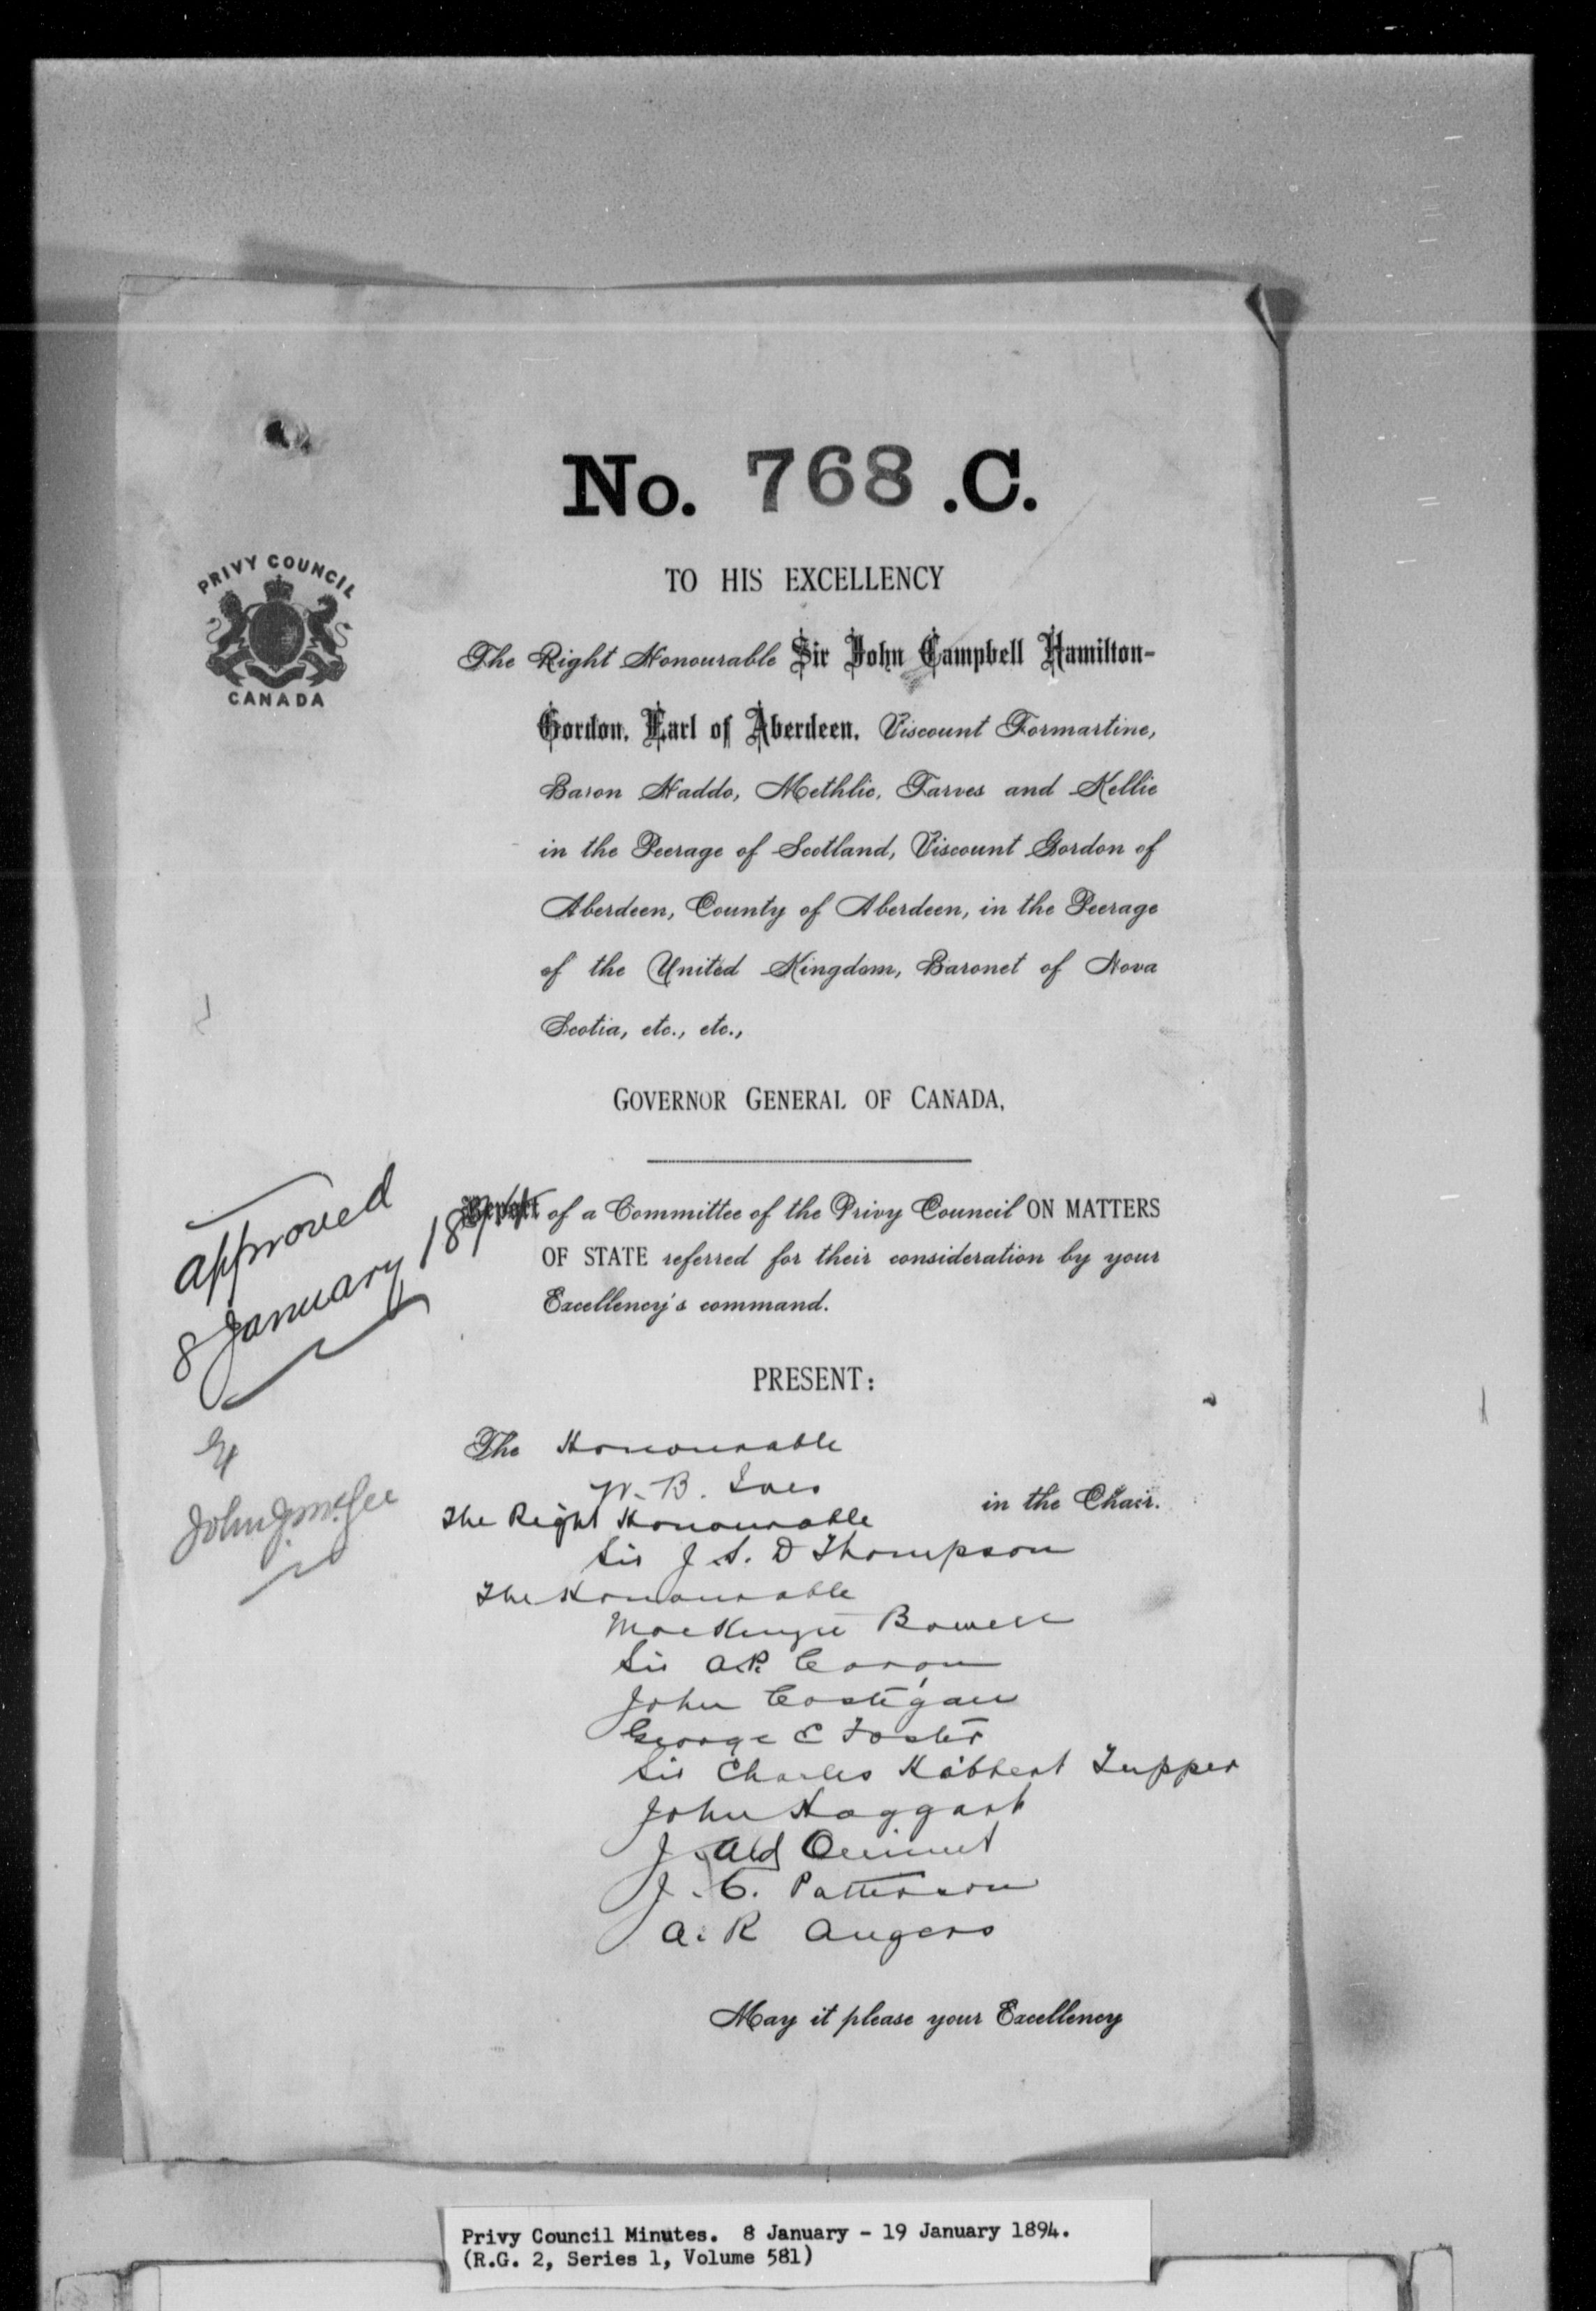 No. 768 .C.
PRIVY COUNCIL
CANADA
TO HIS EXCELLENCY
The Right Honourable Sir John Campbell Hamilton-
Gordon, Earl of Aberdeen, Viscount Formartine,
Baron Haddo, Methlic, Tarves and Kellie
in the Peerage of Scotland, Viscount Gordon of
Aberdeen, County of Aberdeen, in the Peerage
of the United Kingdom, Baronet of Nova
Scotia, etc., etc.,
GOVERNOR GENERAL OF CANADA,
approved
8 January 1894
John J McGee
Report of a Committee of the Privy Council ON MATTERS
OF STATE referred for their consideration by your
Excellency's command.
PRESENT:
The Honourable
W. B. Ives
in the Chair.
The Right Honourable
Sir J. S. D Thompson
The Honourable
MacKenzie Bowell
Sir A.P. Caron
John Costigan
George E Foster
Sir Charles Hibbert Tupper
John Haggart
J. Ald Ouimet
J. C. Patterson
A. R Angers
May it please your Excellency
Privy Council Minutes. 8 January - 19 January 1894.
(R.G. 2, Series 1, Volume 581)